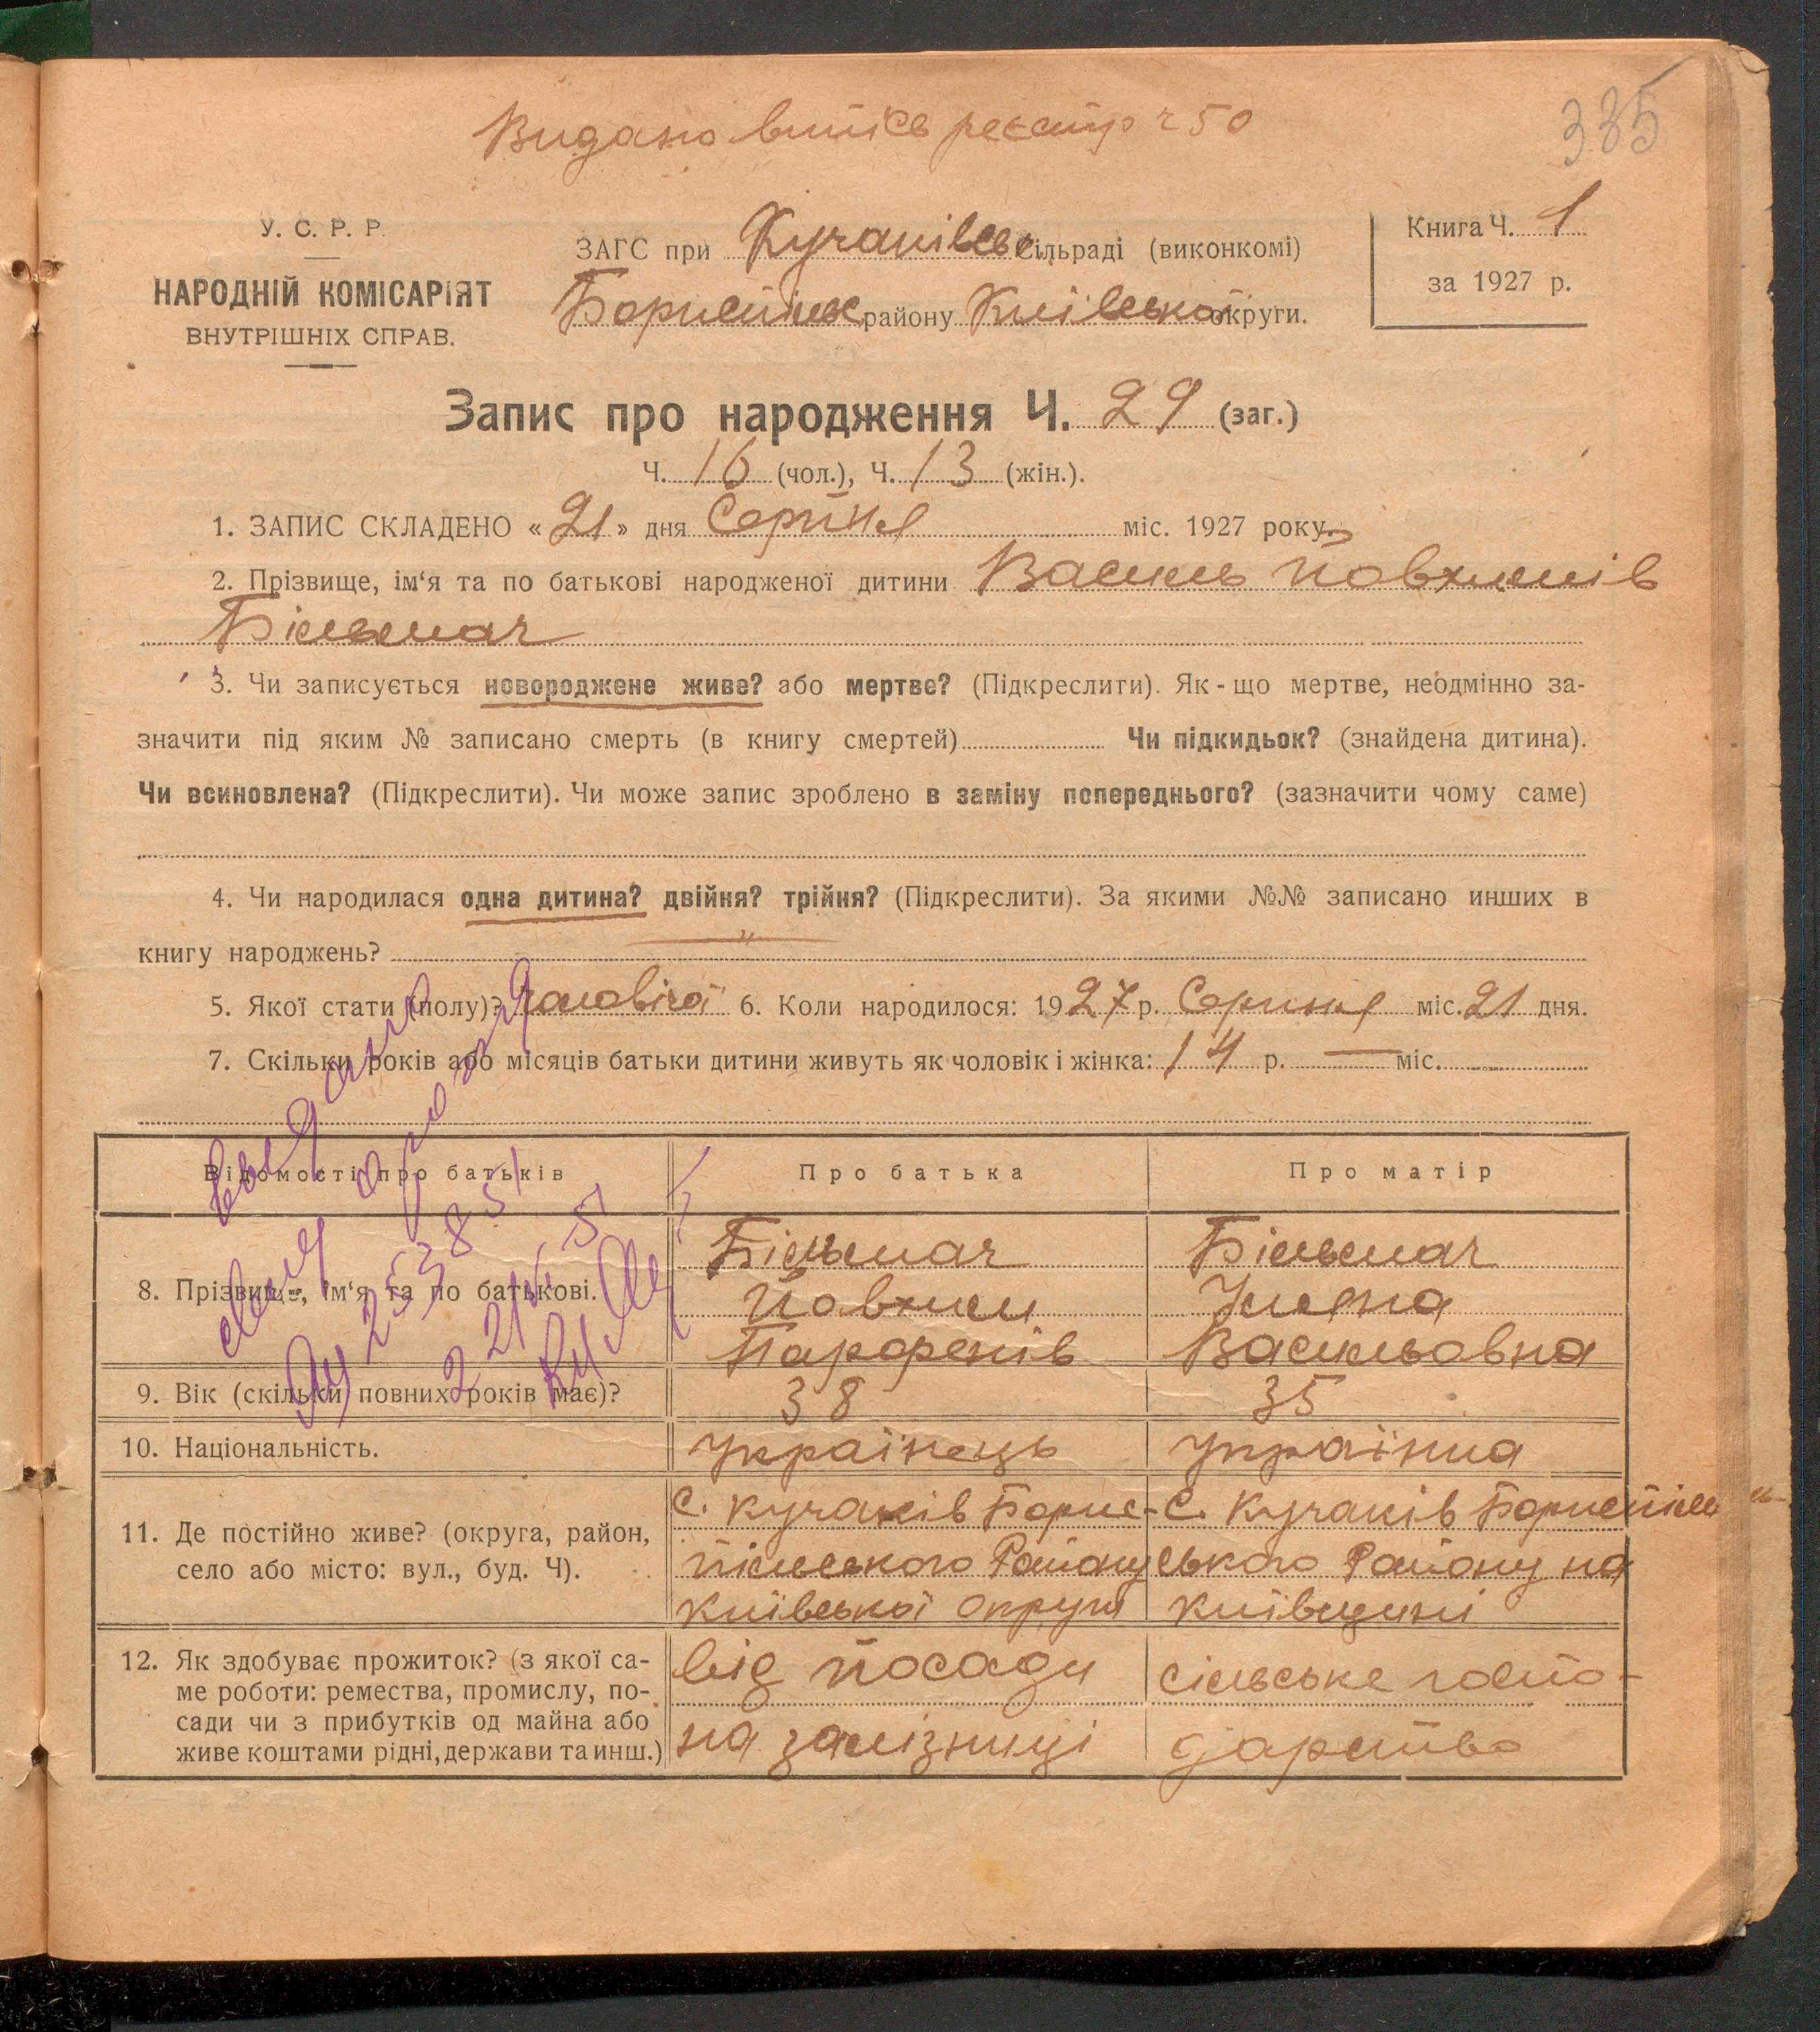 Видано витісь реєстр ч 50
335
У. С. Р. Р.
НАРОДНІЙ КОМІСАРІЯТ
ВНУТРІШНІХ СПРАВ.
ЗАГС при Кучаківськ сільраді (виконкомі)
Бориспільск району Київської округи.
Книга Ч. 1
за 1927 р.
Запис про народження Ч. 29 (заг.)
Ч. 16 (чол.), Ч. 13 (жін.).
1. ЗАПИС СКЛАДЕНО «21» дня Серпня міс. 1927 року.
2. Прізвище, ім‘я та по батькові народженої дитини Василь Йовхимів
Більмач
3. Чи записується новороджене живе? або мертве? (Підкреслити). Як-що мертве, неодмінно за-
значити під яким № записано смерть (в книгу смертей) Чи підкидьок? (знайдена дитина).
Чи всиновлена? (Підкреслити). Чи може запис зроблено в заміну попереднього? (зазначити чому саме)
4. Чи народилася одна дитина? двійня? трійня? (Підкреслити). За якими №№ записано инших в
книгу народжень? „
5. Якої стати (полу)? чоловічої 6. Коли народилося: 1927 р. Серпня міс. 21 дня.
7. Скільки років або місяців батьки дитини живуть як чоловік і жінка: 14 р. — міс.
Відомості про батьків Про батька Про матір
8. Прізвище, ім‘я та по батькові.
Більмач
Йовхим
Парфенів
Більмач
Уляна
Васильовна
9. Вік (скільки повних років має)? 38 35
10. Національність. Українець Українка
11. Де постійно живе? (округа, район,
село або місто: вул., буд. Ч).
с. Кучаків Борис-
пільського Району
Київської округи
с. Кучаків Бориспіль
ського Району на
Київщині
12. Як здобуває прожиток? (з якої са-
ме роботи: ремества, промислу, по-
сади чи з прибутків од майна або
живе коштами рідні, держави та инш.)
від посади
на залізниці
сільське госпо-
дарство